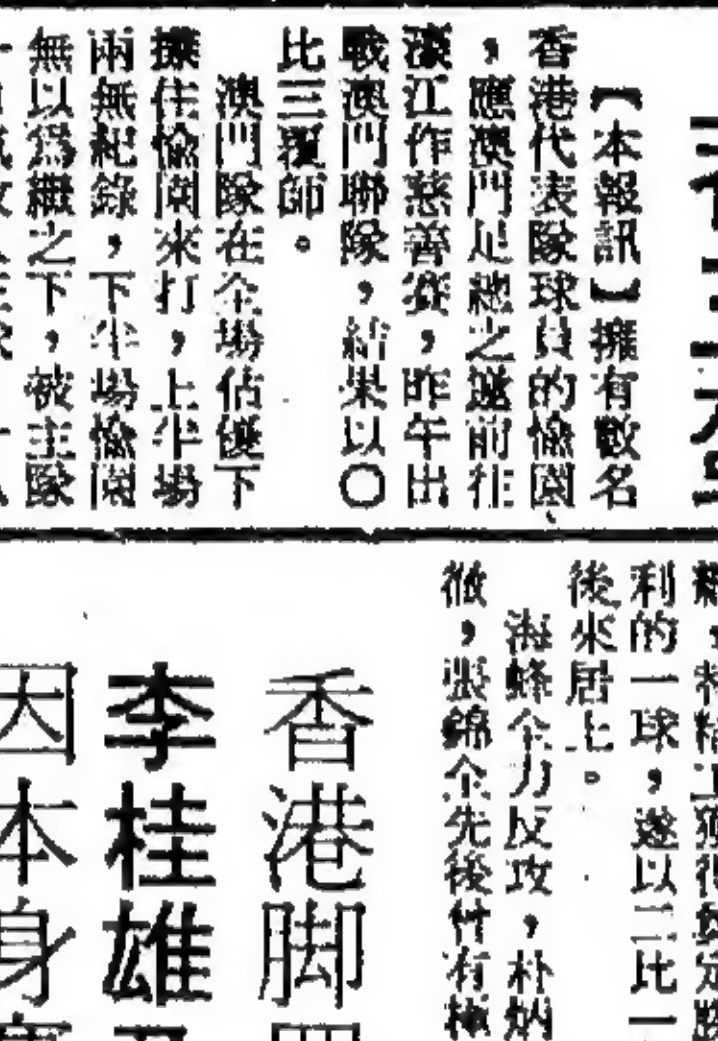 【本報訊】擁有數名
香港代表隊球員的愉園
，應澳門足總之邀前往
濠江作慈善賽，昨午出
戰澳門聯隊，結果以〇
比三覆師。
澳門隊在全場佔優下
壓住愉園來打，上半場
兩無紀錄，下半場愉園
無以爲繼之下，被主隊
利的一球，遂以二比一
後來居上。
海蜂全力反攻，朴炳
徹，張錦全先後什有極
香港脚
李桂雄
因本身